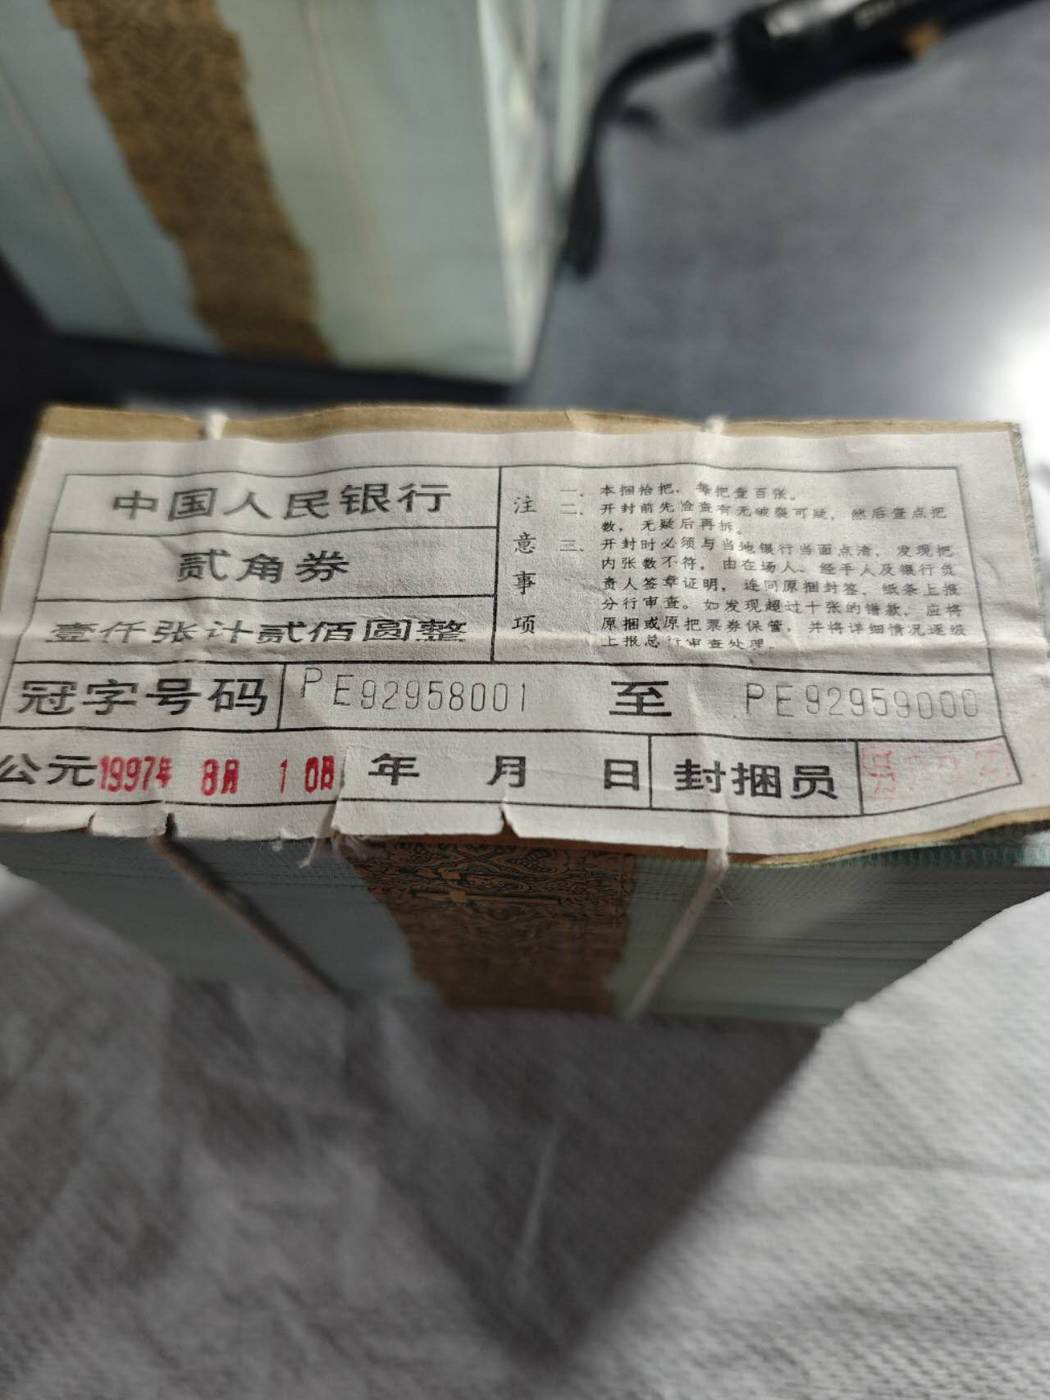 中国人民银行
贰角券
壹仟张计贰佰圆整
注意事项
一、本捆拾把，每把壹百张。
二、开封前先检查有无破裂可疑，然后壹点把
数，无疑后再拆。
三、开封时必须与当地银行当面点清，发现把
内张数不符，由在场人、经手人及银行负
责人签章证明，连同原捆封签、纸条上报
分行审查。如发现超过十张的错款，应将
原捆或原把票券保管，并将详细情况逐级
上报总行审查处理。
冠字号码 PE92958001 至 PE92959000
公元1997年 8月 10日 年 月 日 封捆员